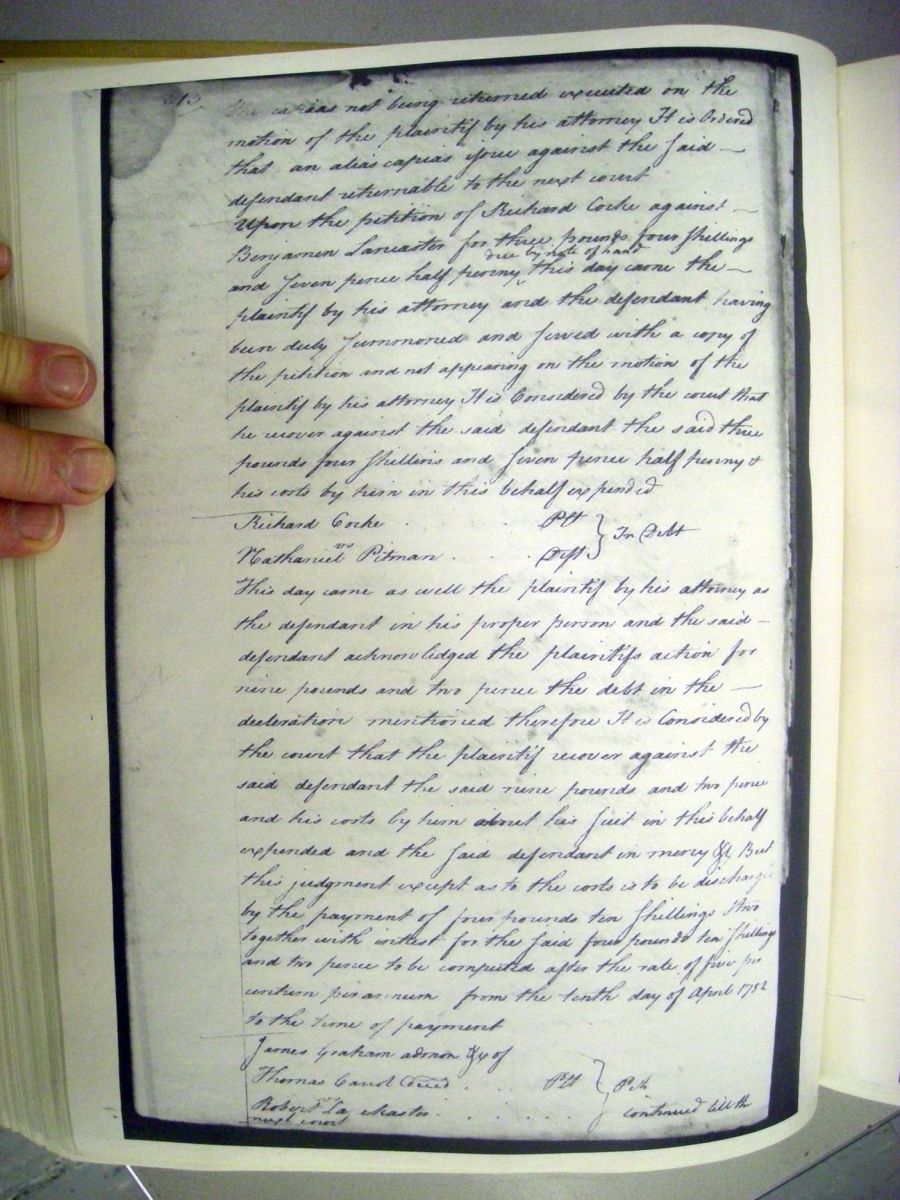 313
The capias not being returned executed on the
motion of the plaintif by his attorney It is Ordered
that an alias capias issue against the said —
defendant returnable to the next court
Upon the petition of Richard Cocke against —
Benjamen Lancaster for three pounds four shillings
due by note of hand
and seven pence half penny ^ this day came the —
plaintif by his attorney and the defendant having
been duly summoned and served with a copy of
the petition and not appearing on the motion of the
plaintif by his attorney It is Considered by the court that
he recover against the said defendant the said three
pounds four shillins and seven pence half penny &
his costs by him in this behalf expended
Richard Cocke . . . . Plt } In Debt
vs
Nathaniel Pitman . . . . Deft
This day came as well the plaintif by his attorney as
the defendant in his proper person and the said —
defendant acknowledged the plaintifs action for
nine pounds and two pence the debt in the —
decleration mentioned therefore It is Considered by
the court that the plaintif recover against the
said defendant the said nine pounds and two pence
and his costs by him about his suit in this behalf
expended and the said defendant in mercy &c But
this judgment except as to the costs is to be discharged
by the payment of four pounds ten shillings & two
together with intrest for the said four pounds ten shillings
and two pence to be computed after the rate of five per
centum per annum from the tenth day of April 1752
to the time of payment
James Graham admon &c of
Thomas Carrol Deced . . . Plt } Peth
vs
Robert La caster . . . . . continued till th
next court